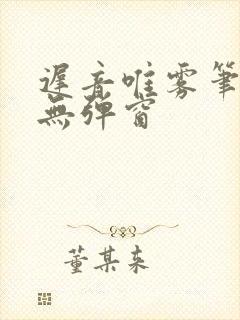 遲音唯雾筆
無弹窗
董某来